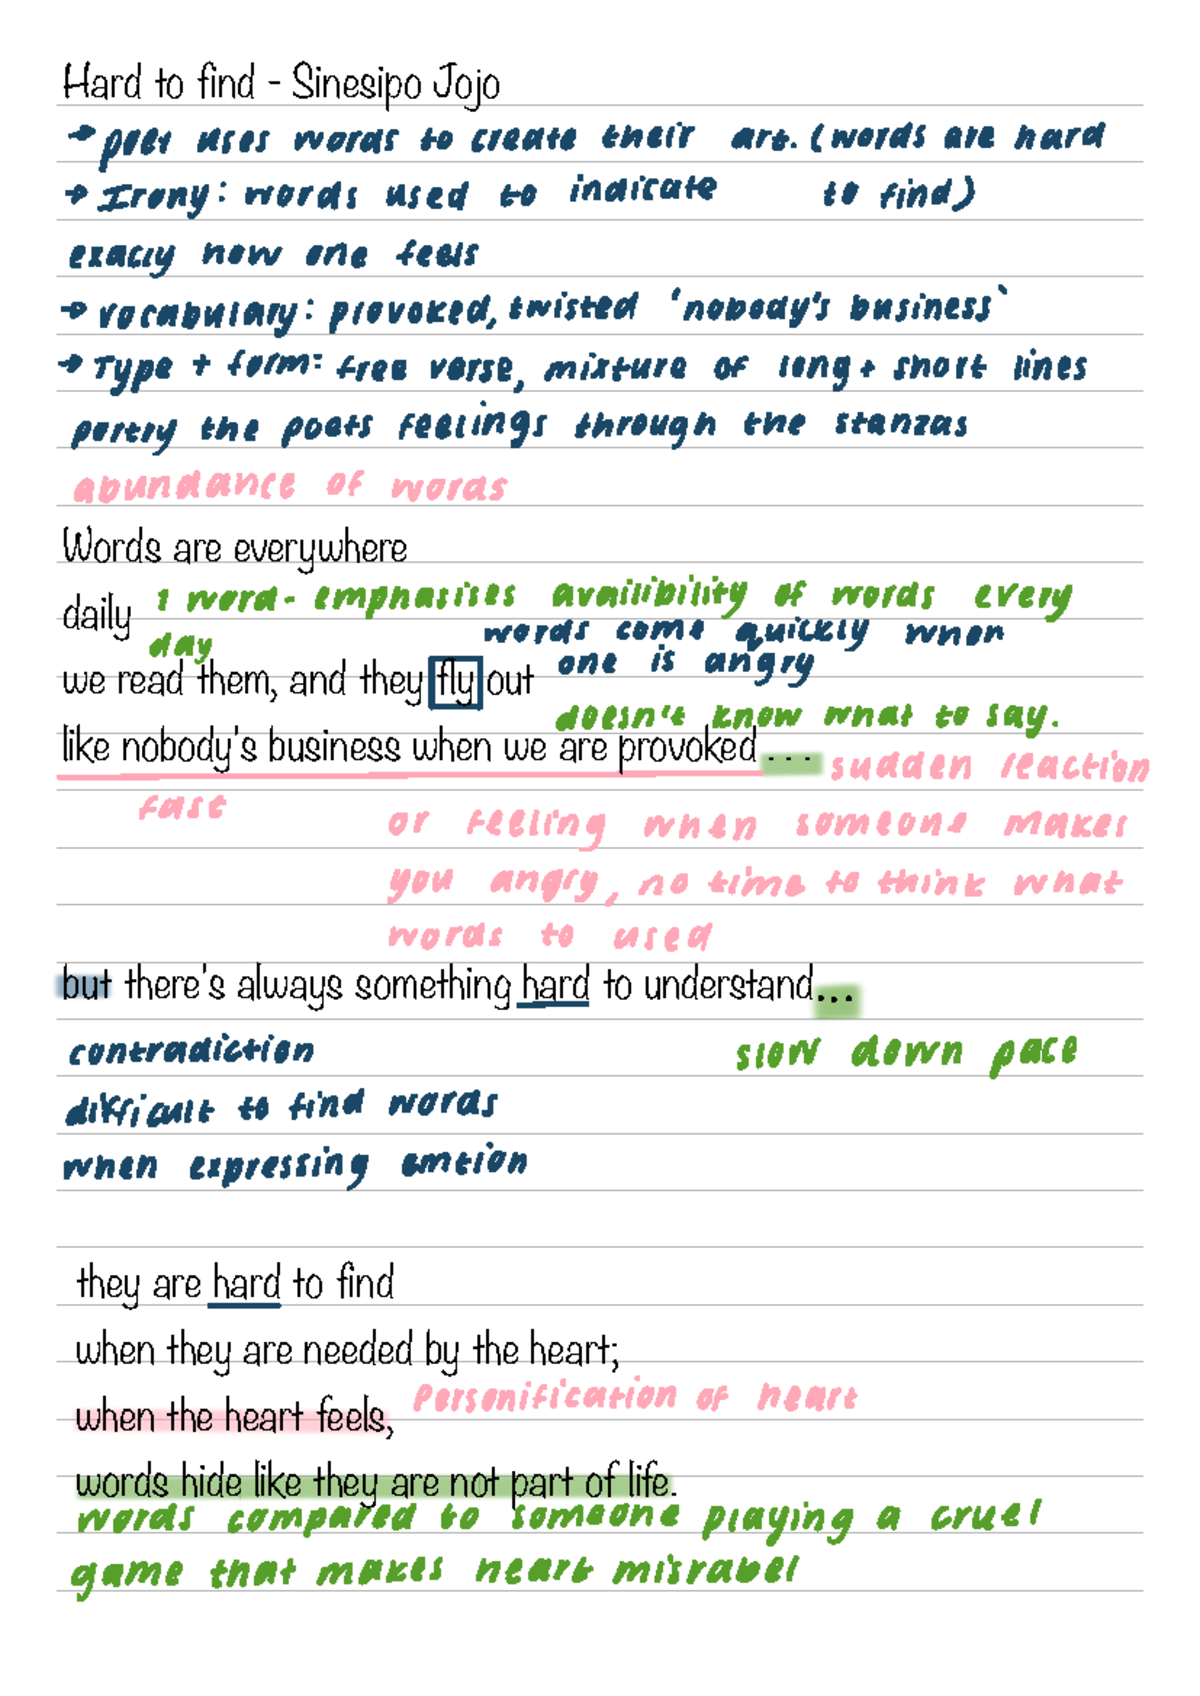 Hard to find - Sinesipo Jojo
→ poet uses words to create their art. (words are hard
→ Irony: words used to indicate to find)
exacly how one feels
→ vocabulary: provoked, twisted 'nobody's business`
→ Type + form: free verse, mixture of long + short lines
portry the poets feelings through the stanzas
abundance of words
Words are everywhere
daily 1 word - emphasises availibility of words every
day
words come quickly when
we read them, and they fly out one is angry
doesn't know what to say.
like nobody's business when we are provoked... sudden reaction
fast or feeling when someone makes
you angry, no time to think what
words to used
but there's always something hard to understand...
contradiction slow down pace
difficult to find words
when expressing emtion
they are hard to find
when they are needed by the heart;
when the heart feels, Personification of heart
words hide like they are not part of life.
words compared to someone playing a cruel
game that makes heart misrabel